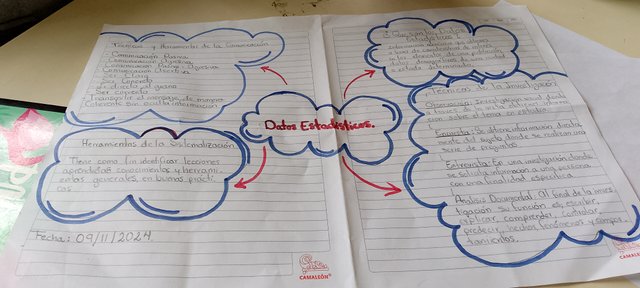 Técnicas y Herramientas de la Comunicación
Comunicación Pasiva
Comunicación Agresiva
Comunicación Pasivo Agresiva
Comunicación Asertiva
Ser Claro
Ser
Ir directo al grano
Ser coherente
Transmitir el mensaje de manera
Coherente sin oculta información
Herramientas de la Sistematización
Tiene como fin identificar lecciones
aprendidas conocimientos y herrami-
entas generales, en buenas practi-
cas
Fecha: 09/11/2024
Datos Estadísticos.
Datos
Estadísticos
información
de una población
estado determinado
Técnicas de la Investigación
Observación: Investigación donde
a través de la
ción sobre el tema en estudio
Encuesta: Se obtiene información directa-
mente del sujeto donde se realizan una
serie de preguntas
Entrevista: En una investigación donde
se solicita información a una persona
con una finalidad específica
Analisis Documental: Al final de la inves-
tigación su función es, escribir,
explicar, comprender, controlar,
predecir, hechos, fenómenos y compor-
tamientos.
CAMALEÓN
CAMALEÓN